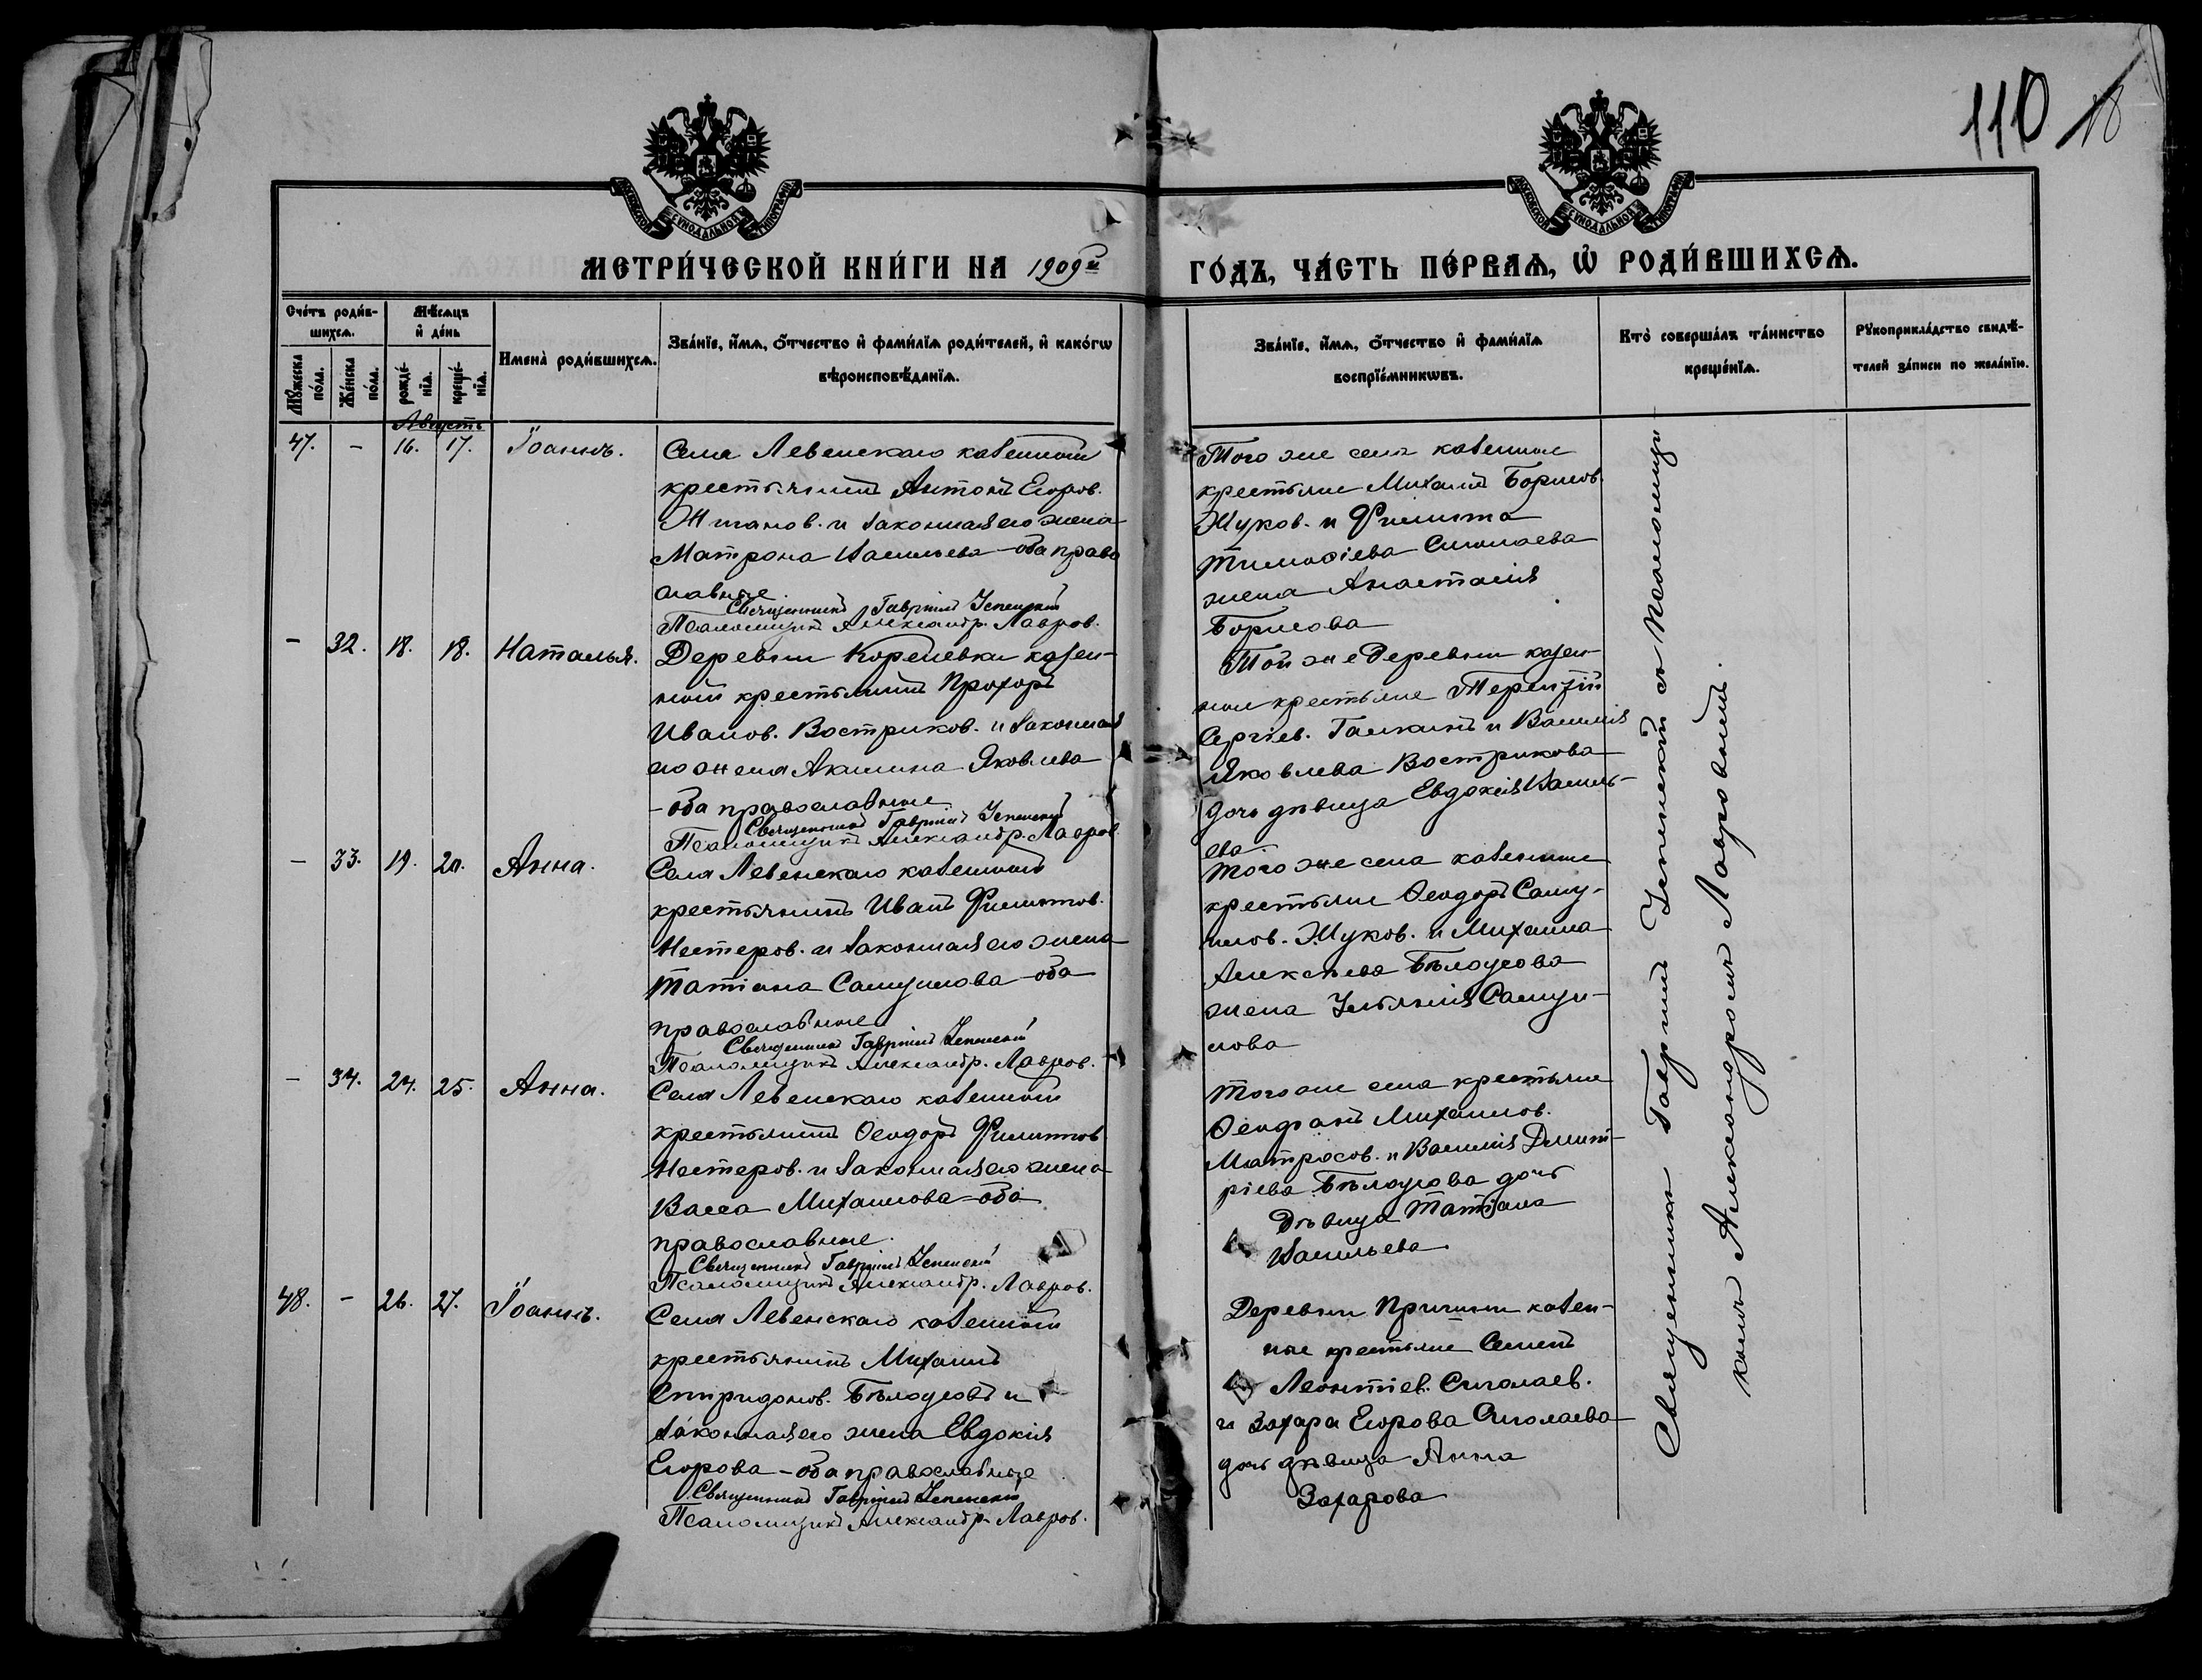 110 18
МОСКОВСКОЙ СѴНОДАЛЬНОЙ ТИПОГРАФІИ
МЕТРИ́ЧЕСКОЙ КНИ́ГИ НА 1909й
ГО́ДЪ, ЧА́СТЬ ПЕ́РВАѦ, Ѡ҆ РОДИ́ВШИХСѦ.
Сче́тъ роди́в-
шихсѧ.
Мꙋ́жеска по́ла.
Же́нска по́ла.
Мѣ́сѧцъ
и҆ де́нь
рожде́-
нїѧ.
креще́-
нїѧ.
Имена̀ роди́вшихсѧ.
Зва́нїе, и҆́мѧ, ѻ҆́тчество и҆ фами́лїѧ роди́телей, и҆ како́гѡ
вѣроисповѣ́данїѧ.
Зва́нїе, и҆́мѧ, ѻ҆́тчество и҆ фами́лїѧ
воспрїе́мникѡвъ.
Кто̀ соверша́лъ та́инство
креще́нїѧ.
Рꙋкоприкла́дство свидѣ́-
телей за́писи по жела́нїю.
Августъ
47. — 16. 17. Іоаннъ.
Села Левенскаго казенный
крестьянинъ Антонъ Егоров.
и законная его жена
Матрона Васильева — оба право
славные.
Священникъ Гавріилъ Успенскій
Псаломщикъ Александр. Лавров.
Того же села казенные
крестьяне Михаилъ Борисов.
Жуков. и Филиппа
Тимофіева Сиголаева
жена Анастасія
Борисова
— 32. 18. 18. Наталья.
Деревни Кореневки казен-
ный крестьянинъ Прохоръ
Иванов. Востриков. и законная
его жена Акилина Яковлева
— оба православные
Священникъ Гавріилъ Успенскій
Псаломщикъ Александр. Лавров.
Той же деревни казен-
ные крестьяне Терентій
Сергіев. Галкинъ и Василія
Яковлева Вострикова
дочь дѣвица Евдокія Василь-
ева.
— 33. 19. 20. Анна.
Села Левенскаго казенный
крестьянинъ Иванъ Филиппов.
Нестеров. и законная его жена
Татіана Самуилова — оба
православные
Священникъ Гавріилъ Успенскій
Псаломщикъ Александр. Лавров.
Того же села казенные
крестьяне Ѳеодоръ Саму-
илов. Жуков. и Михаила
Алексѣева Бѣлоусова
жена Ульянія Самуи-
лова
— 34. 24. 25. Анна.
Села Левенскаго казенный
крестьянинъ Ѳеодоръ Филиппов
Нестеров. и законная его жена
Васса Михаилова — оба
православные.
Священникъ Гавріилъ Успенскій
Псаломщикъ Александр. Лавров.
Того же села крестьяне
Ѳеофанъ Михаилов.
Матросов. и Василія Димит-
ріева Бѣлоусова дочь
дѣвица Татіана
Васильева
48. — 26. 27. Іоаннъ.
Села Левенскаго казенный
крестьянинъ Михаилъ
Спиридонов. Бѣлоусовъ и
законная его жена Евдокія
Егорова — оба православные
Священникъ Гавріилъ Успенскій
Псаломщикъ Александр. Лавров.
Деревни казен-
ные крестьяне Семенъ
Леонтіев. Сиголаев.
и Захара Егорова Сиголаева
дочь дѣвица Анна
Захарова
Священникъ Гавріилъ Успенскій съ Псаломщи
комъ Александромъ Лавровымъ.